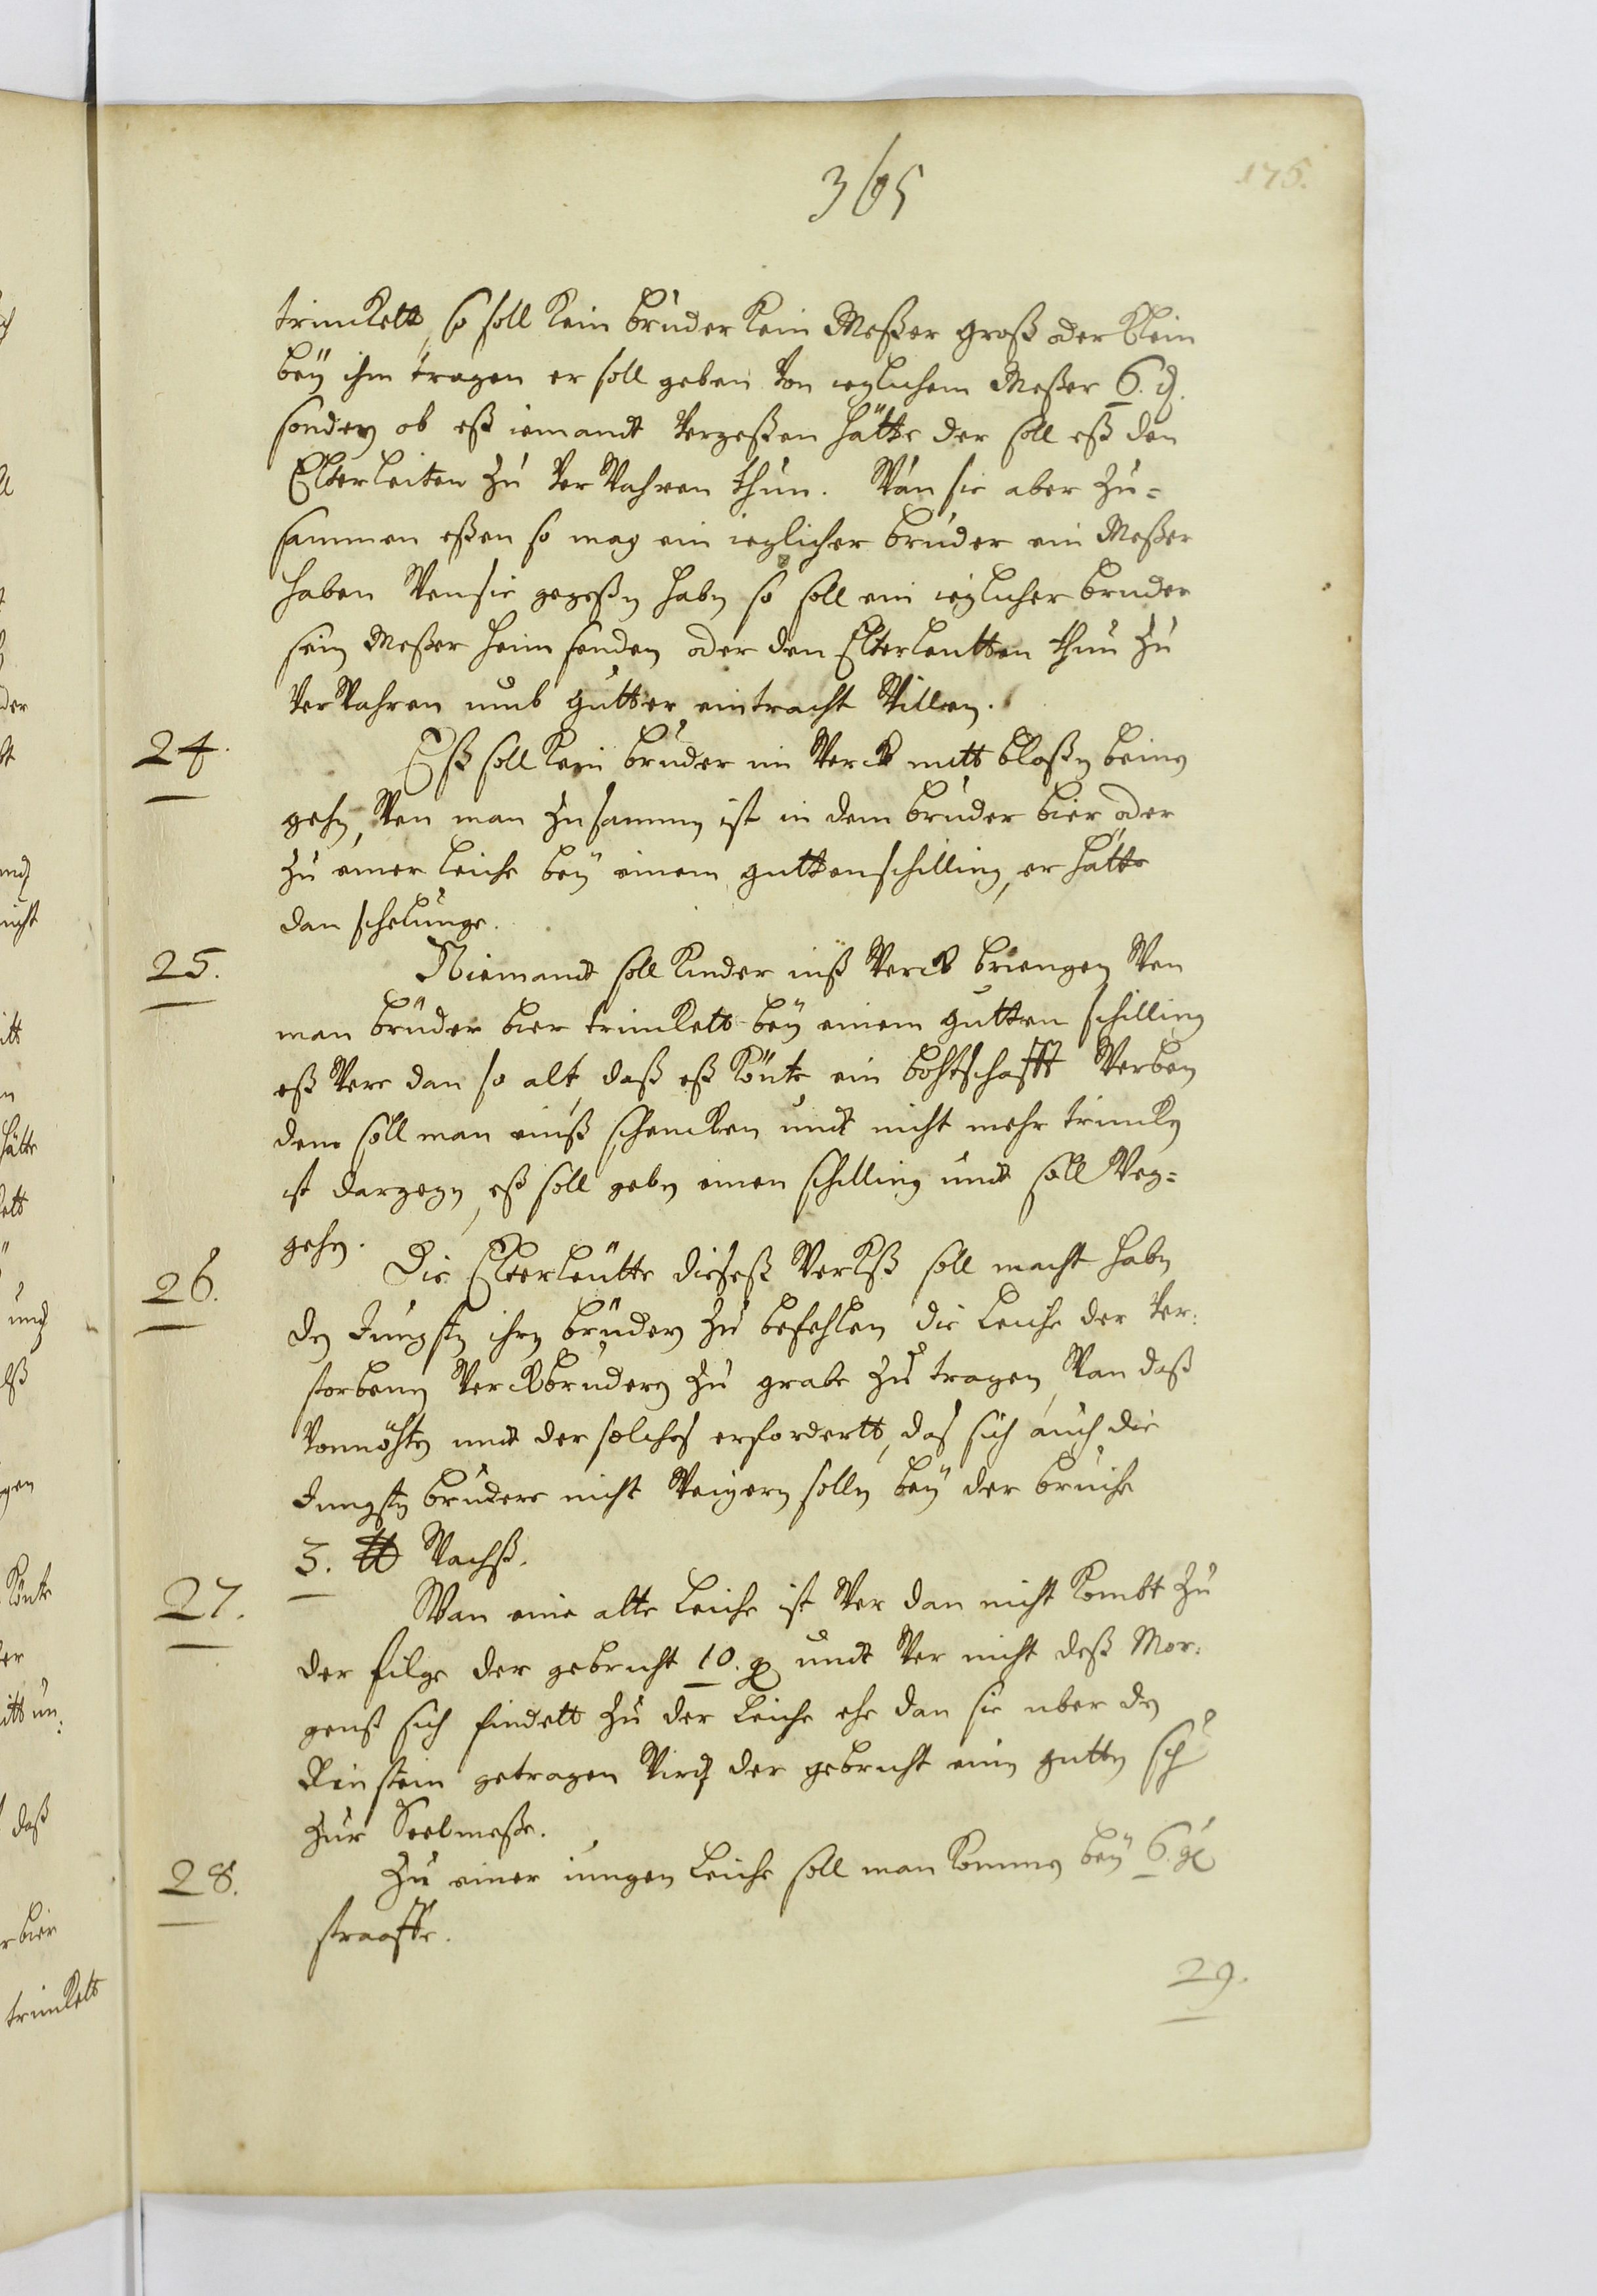 365
175.
trinckett, so soll kein bruder kein Meßer groß oder klein
beÿ ihm tragen er soll geben von ieglichem Meßer 6. d.
sondern ob eß iemandt vergeßen hätte der soll eß den
Elterleiten zu verwahren thun. Wan sie aber zu=
sammen eßen so mag ein ieglicher bruder ein Meßer
haben Wen sie gegeßen haben so soll ein ieglicher bruder
sein Meßer heim senden oder den Elterleutten thun zu
verwahren umb gutter eintracht Willen.
24.
Eß soll kein bruder im Werck mitt bloßen beinen
gehen, Wen man zusammen ist in dem bruder bier oder
zu einer leiche beÿ einem gutten schilling, er hätte
dan schelunge.
25.
Niemandt soll kinder inß Werck briengen Wen
man bruder bier trinckett beÿ einem gutten schilling
eß Were dan so alt, daß eß könte ein bohtschafft Werben
dem soll man einß schencken undt nicht mehr trincket
ist dargegen, eß soll geben einen schilling undt soll Weg=
gehen.
26.
Die Elterleutte dieseß Wercks soll macht haben
den Jungsten ihren brüdern zu befehlen die leiche der ver:
storbenen Werckbrudern zu grabe zu tragen, Wan daß
vonnöhten undt der solches erfordertt, das sich auch die
Jungsten bruder nicht Weigern sollen beÿ der bruche
3. ℔ Wachß.
27.
Wan eine alte leiche ist Wer dan nicht kombt zu
der filge der gebricht 10. g undt Wer nicht deß Mor:
genß sich findett zu der leiche ehe dan sie uber den
Rinstein getragen Wird, der gebricht einen gutten sch
zur Seelmeße.
28.
Zu einer iungen leiche soll man kommen beÿ 6. gl
straaffe.
29.